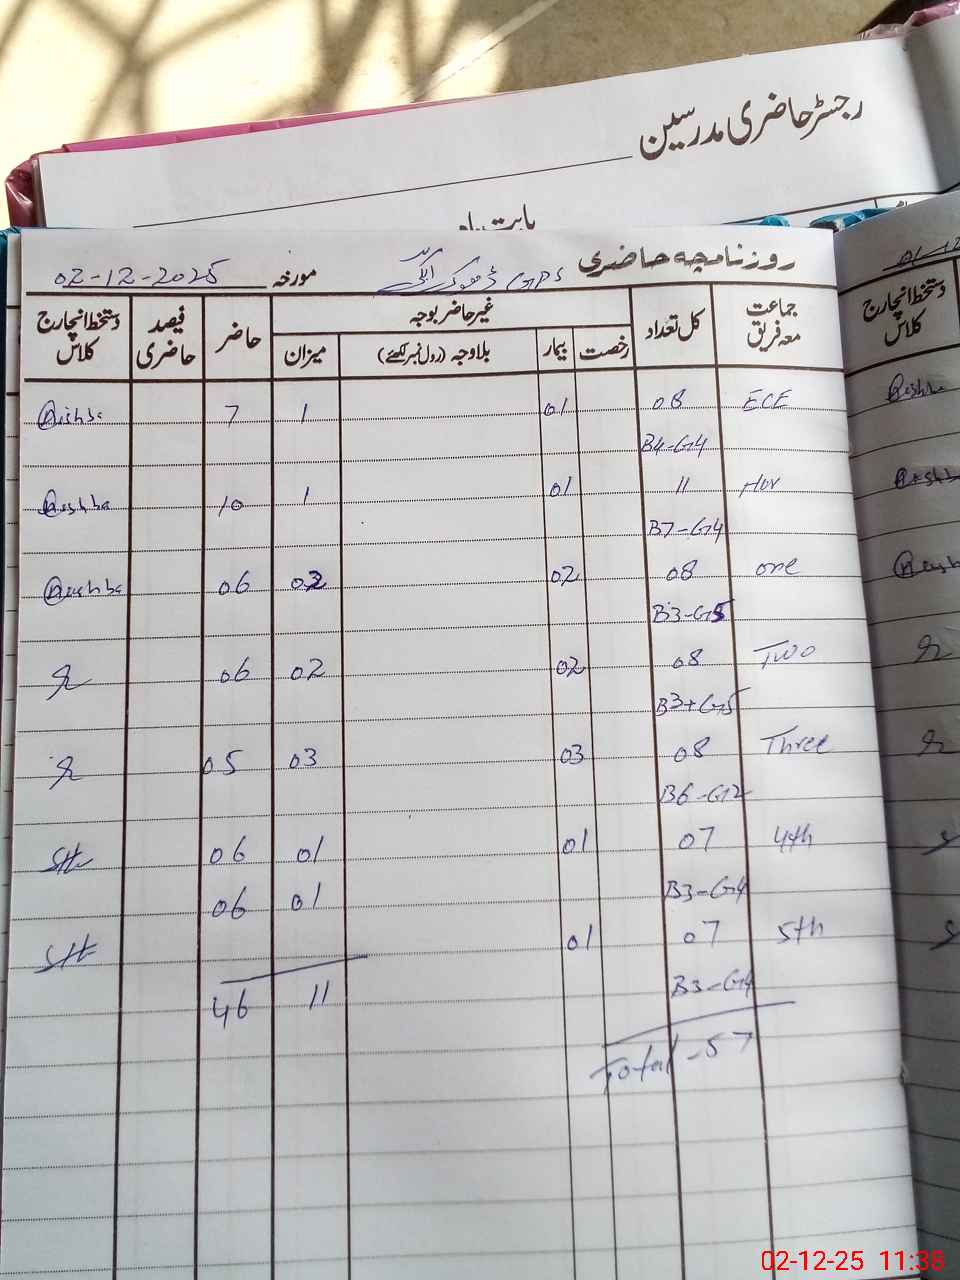 رجسٹر حاضری مدرسین
بابت ماہ
روزنامچہ حاضری GPS ڈھوک مورخہ 02-12-2025
جماعت معہ فریق کل تعداد غیر حاضر بوجہ حاضر فیصد حاضری دستخط انچارج کلاس
رخصت بیمار بلاوجہ (رول نمبر لکھئے) میزان
ECE 08 01 1 7 Rishba
B4-G4
11 01 1 10 Rishba
B7-G4
one 08 02 02 06 Rishba
B3-G5
Two 08 02 02 06
B3+G5
Three 08 03 03 05
B6-G2
4th 07 01 01 06
B3-G4 01 06
5th 07 01
B3-G4 11 46
Total - 57
دستخط انچارج کلاس
02-12-25 11:38